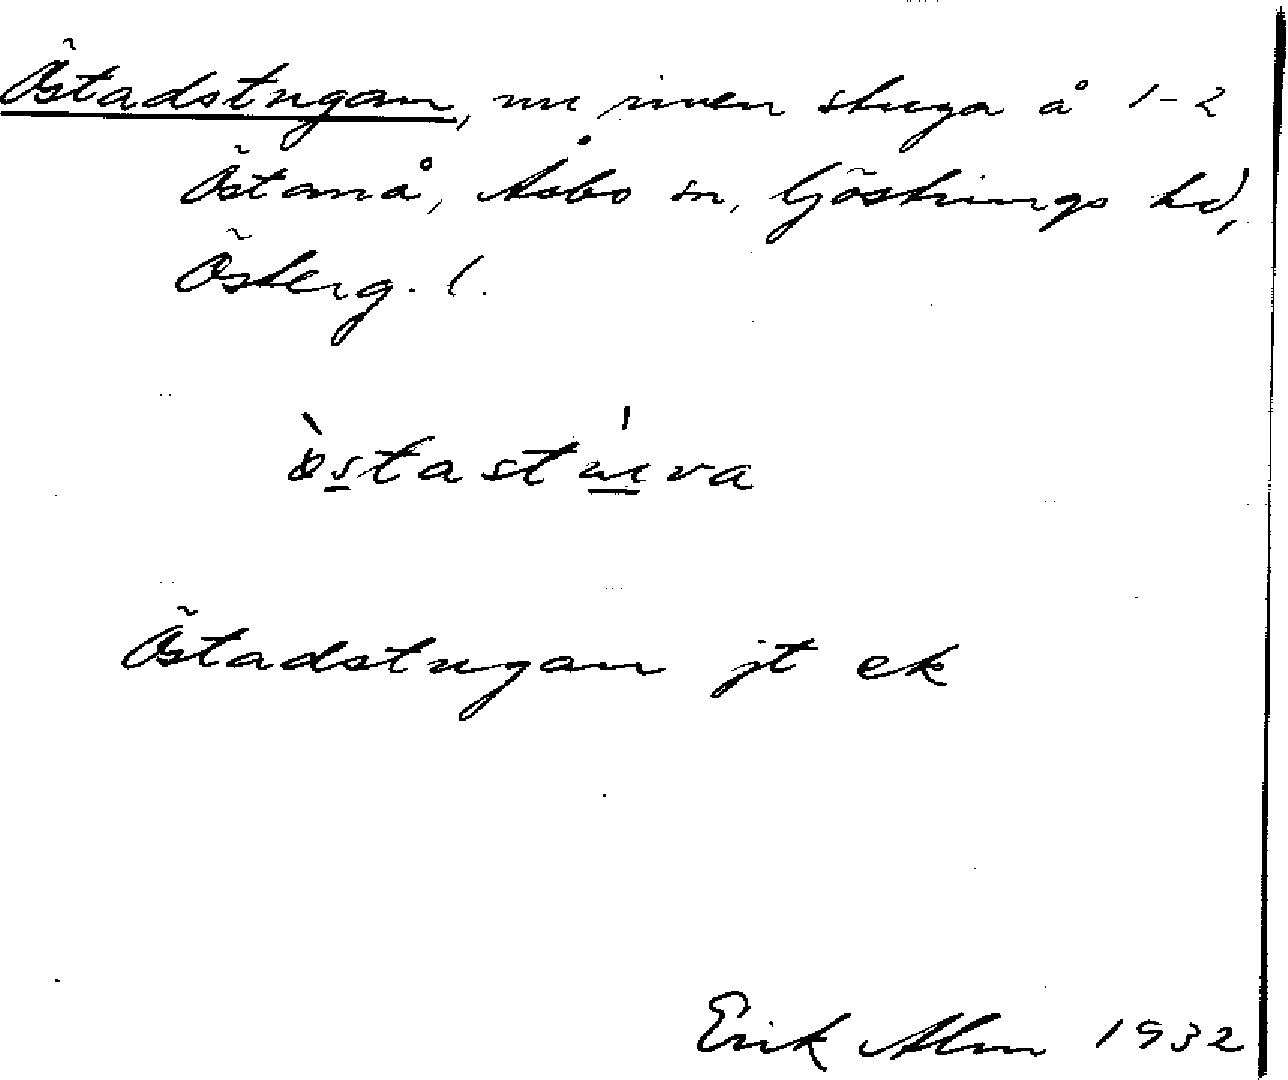 Östadstugan, nu riven stuga å 1-2
Östanå, Åsbo sn, Göstrings hd,
Österg. l.
ò̀stastúva
Östadstugan jt ek
Erik Alm 1932